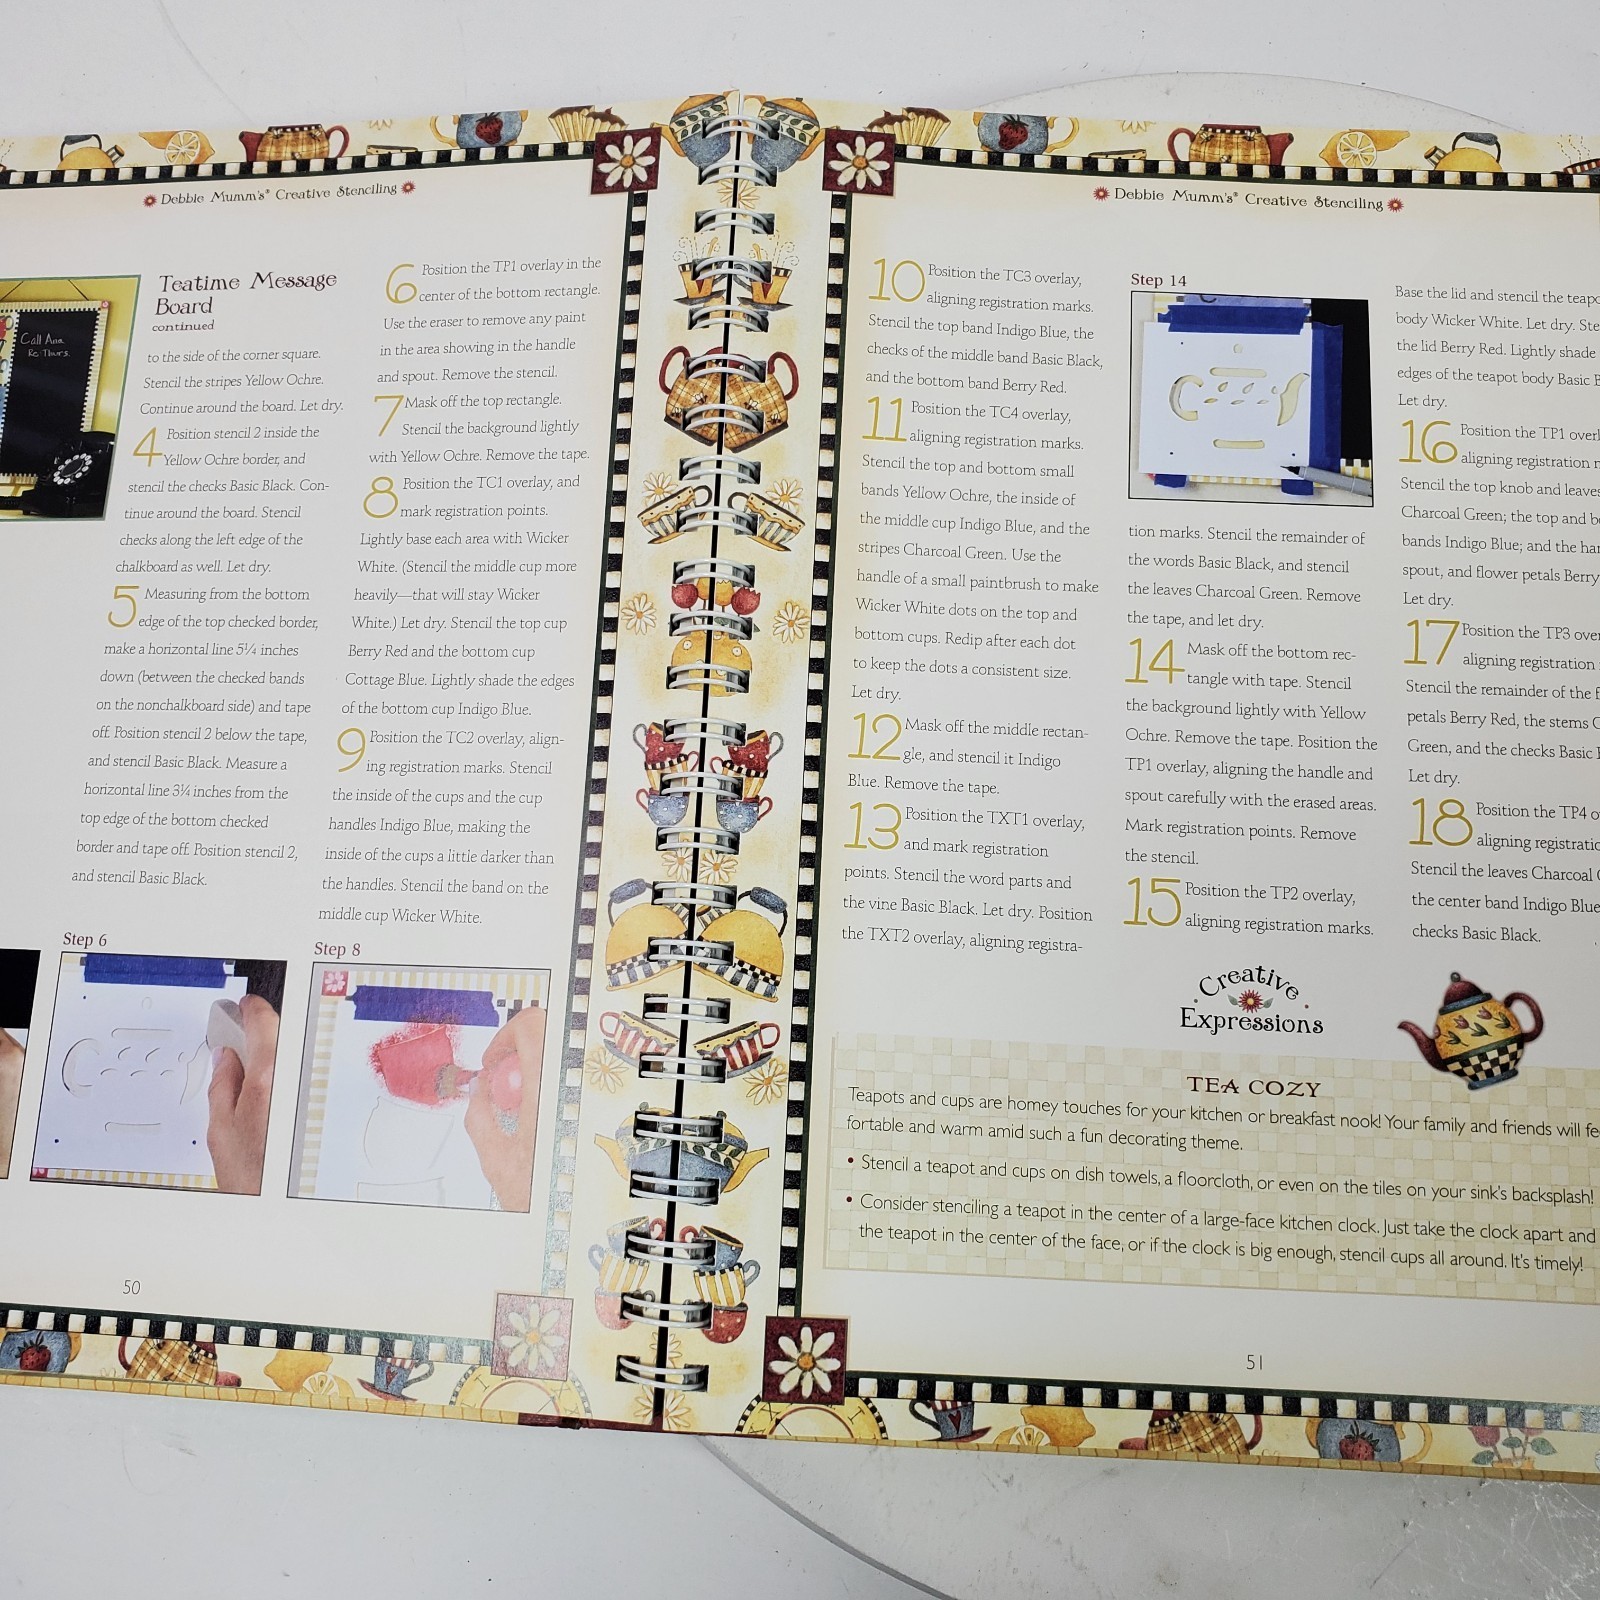 Debbie Mumm's® Creative Stenciling
Call Ana
Re: Thurs.
Teatime Message
Board
continued
to the side of the corner square.
Stencil the stripes Yellow Ochre.
Continue around the board. Let dry.
4 Position stencil 2 inside the
Yellow Ochre border, and
stencil the checks Basic Black. Con-
tinue around the board. Stencil
checks along the left edge of the
chalkboard as well. Let dry.
5 Measuring from the bottom
edge of the top checked border,
make a horizontal line 5¼ inches
down (between the checked bands
on the nonchalkboard side) and tape
off. Position stencil 2 below the tape,
and stencil Basic Black. Measure a
horizontal line 3¼ inches from the
top edge of the bottom checked
border and tape off. Position stencil 2,
and stencil Basic Black.
6 Position the TP1 overlay in the
center of the bottom rectangle.
Use the eraser to remove any paint
in the area showing in the handle
and spout. Remove the stencil.
7 Mask off the top rectangle.
Stencil the background lightly
with Yellow Ochre. Remove the tape.
8 Position the TC1 overlay, and
mark registration points.
Lightly base each area with Wicker
White. (Stencil the middle cup more
heavily—that will stay Wicker
White.) Let dry. Stencil the top cup
Berry Red and the bottom cup
Cottage Blue. Lightly shade the edges
of the bottom cup Indigo Blue.
9 Position the TC2 overlay, align-
ing registration marks. Stencil
the inside of the cups and the cup
handles Indigo Blue, making the
inside of the cups a little darker than
the handles. Stencil the band on the
middle cup Wicker White.
Step 6
Step 8
50
Debbie Mumm's® Creative Stenciling
10 Position the TC3 overlay,
aligning registration marks.
Stencil the top band Indigo Blue, the
checks of the middle band Basic Black,
and the bottom band Berry Red.
11 Position the TC4 overlay,
aligning registration marks.
Stencil the top and bottom small
bands Yellow Ochre, the inside of
the middle cup Indigo Blue, and the
stripes Charcoal Green. Use the
handle of a small paintbrush to make
Wicker White dots on the top and
bottom cups. Redip after each dot
to keep the dots a consistent size.
Let dry.
12 Mask off the middle rectan-
gle, and stencil it Indigo
Blue. Remove the tape.
13 Position the TXT1 overlay,
and mark registration
points. Stencil the word parts and
the vine Basic Black. Let dry. Position
the TXT2 overlay, aligning registra-
Step 14
tion marks. Stencil the remainder of
the words Basic Black, and stencil
the leaves Charcoal Green. Remove
the tape, and let dry.
14 Mask off the bottom rec-
tangle with tape. Stencil
the background lightly with Yellow
Ochre. Remove the tape. Position the
TP1 overlay, aligning the handle and
spout carefully with the erased areas.
Mark registration points. Remove
the stencil.
15 Position the TP2 overlay,
aligning registration marks.
Base the lid and stencil the
body Wicker White. Let dry.
the lid Berry Red. Lightly shade
edges of the teapot body Basic
Let dry.
16 Position the TP1
aligning registration
Stencil the top knob and leaves
Charcoal Green; the top and
bands Indigo Blue; and the
spout, and flower petals Berry
Let dry.
17 Position the TP3
aligning registration
Stencil the remainder of the
petals Berry Red, the stems
Green, and the checks Basic
Let dry.
18 Position the TP4
aligning
Stencil the leaves Charcoal
the center band Indigo Blue
checks Basic Black.
Creative
Expressions
TEA COZY
Teapots and cups are homey touches for your kitchen or breakfast nook! Your family and friends will
fortable and warm amid such a fun decorating theme.
• Stencil a teapot and cups on dish towels, a floorcloth, or even on the tiles on your sink's backsplash!
• Consider stenciling a teapot in the center of a large-face kitchen clock. Just take the clock apart and
the teapot in the center of the face, or if the clock is big enough, stencil cups all around. It's timely!
51